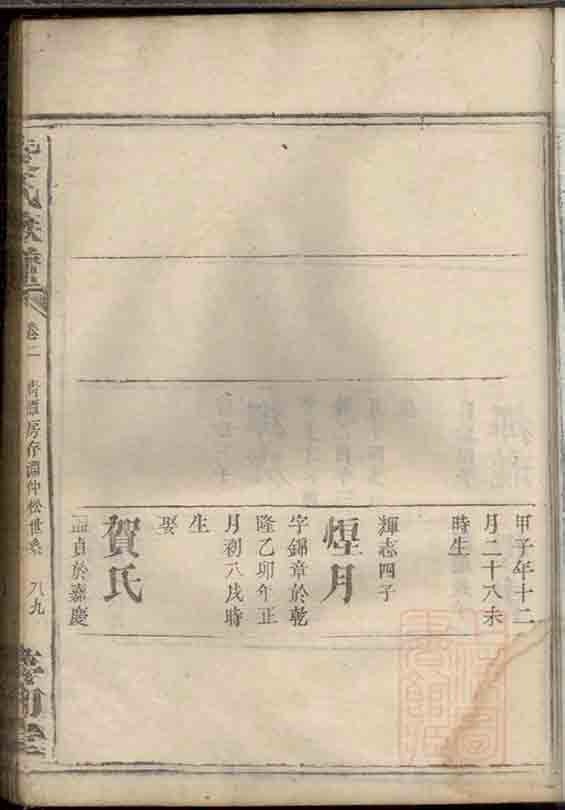 甲子年十二
月二十八未
時生
輝志四子
煙月
字錦章於乾
隆乙卯年正
月初八戌時
生
娶
賀氏
貞於嘉慶
氏族譜
卷二
房存淵仲松世系
八九